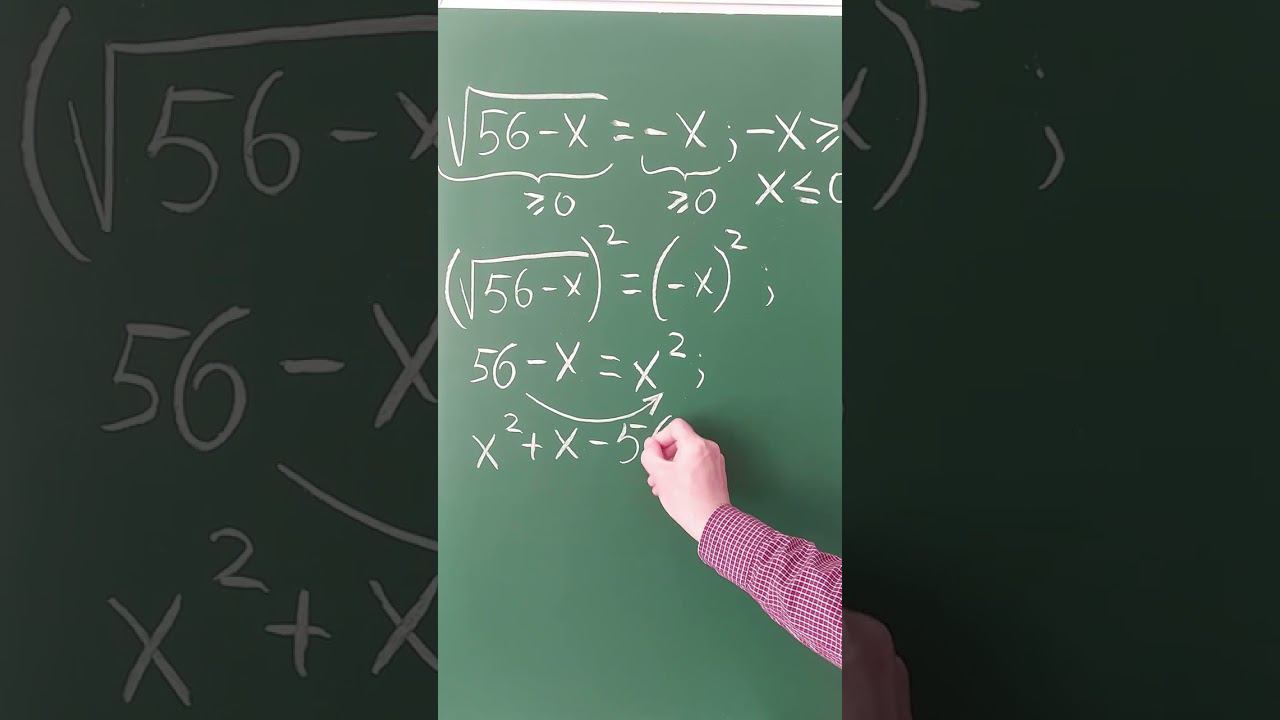 √56-x = -x ; -x ≥
≥0 ≥0 x ≤ 0
(√56-x)² = (-x)² ;
56 - x = x² ;
x² + x - 5